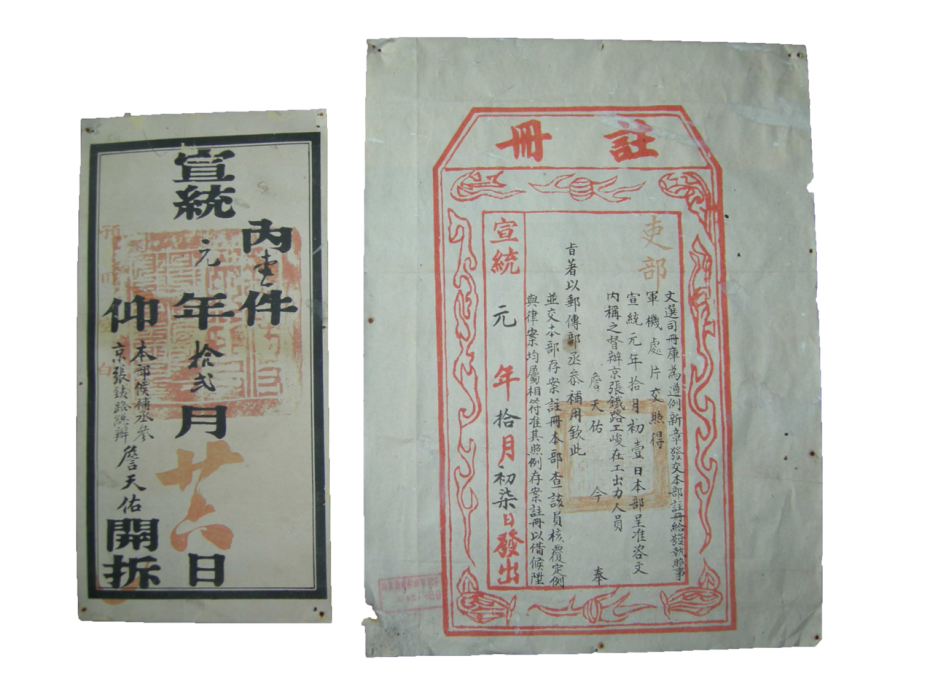 註冊
吏部
文選司冊庫為過例新章發交本部註冊給發執照事
軍機處片交照得
宣統元年拾月初壹日本部呈准咨文
內稱之督辦京張鐵路工竣在工出力人員
詹天佑 今 奉
旨著以郵傳部丞參補用欽此
並交本部存案註冊本部查該員核覆定例
與律案均屬相符准其照例存案註冊以備候陞
宣統元年拾月初柒日發出
內壹件
宣統元年拾弍月廿六日
仰本部候補丞參
京張鐵路總辦詹天佑開拆